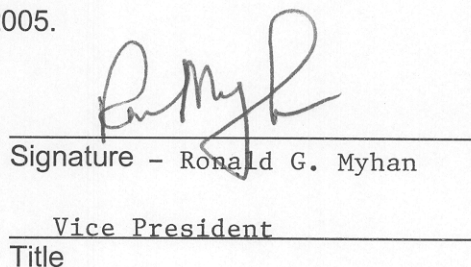 2005.
Signature - Ronald G. Myhan
Vice President
Title